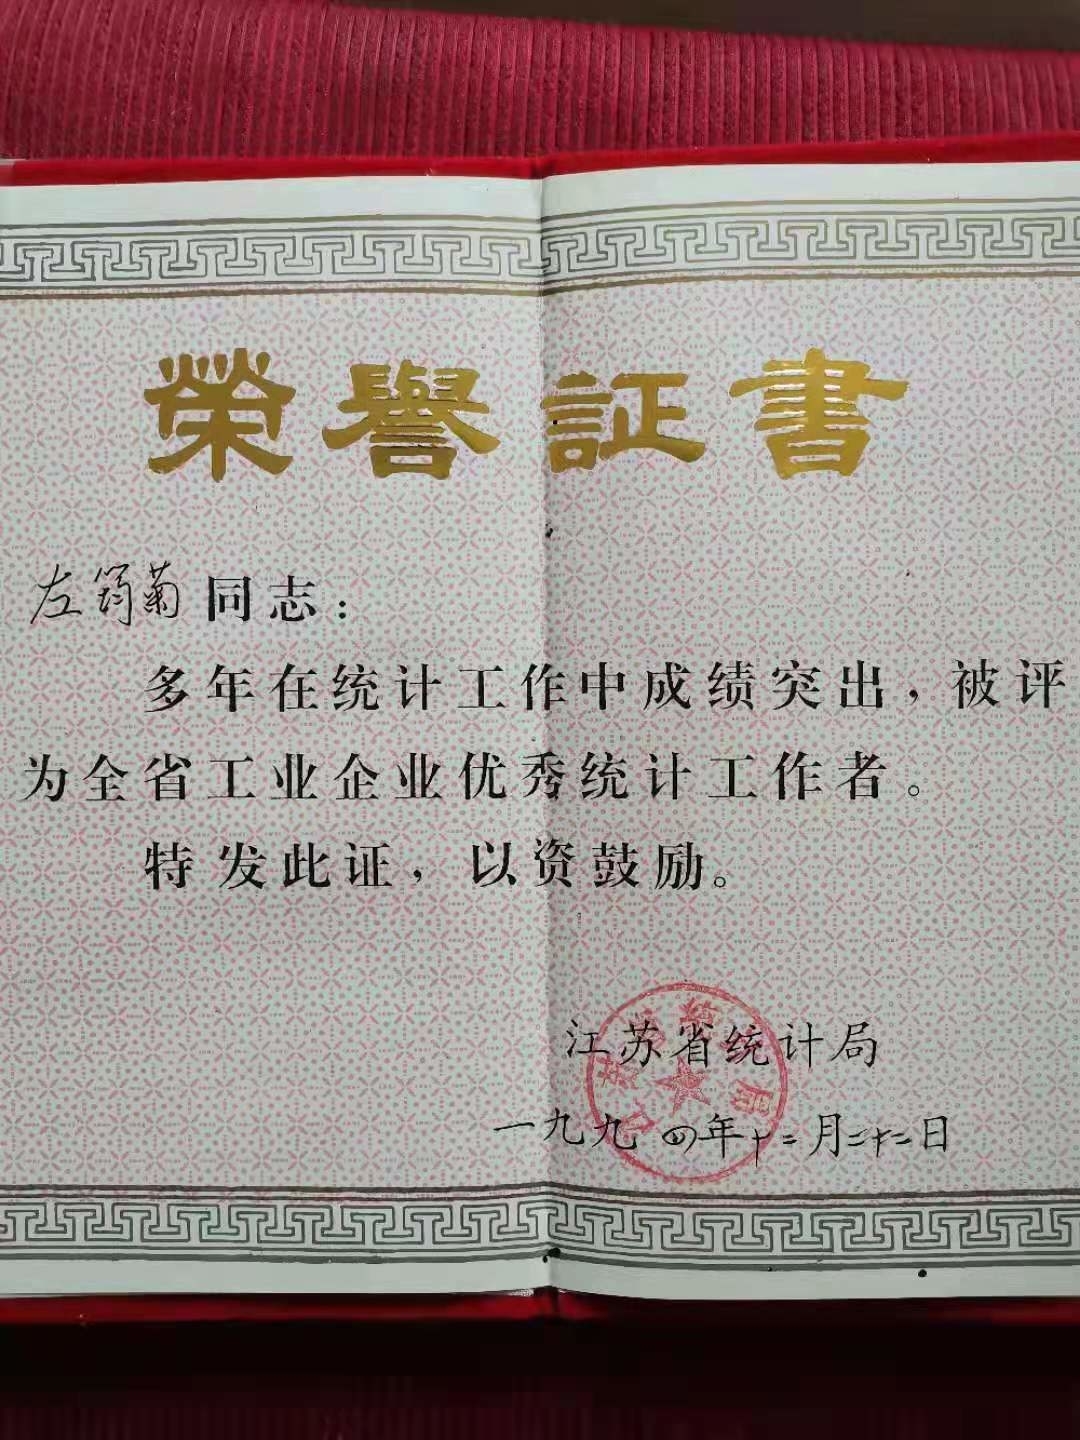 榮譽証書
左筠菊同志：
多年在统计工作中成绩突出，被评
为全省工业企业优秀统计工作者。
特发此证，以资鼓励。
江苏省统计局
一九九四年十二月二十二日
江苏省统计局